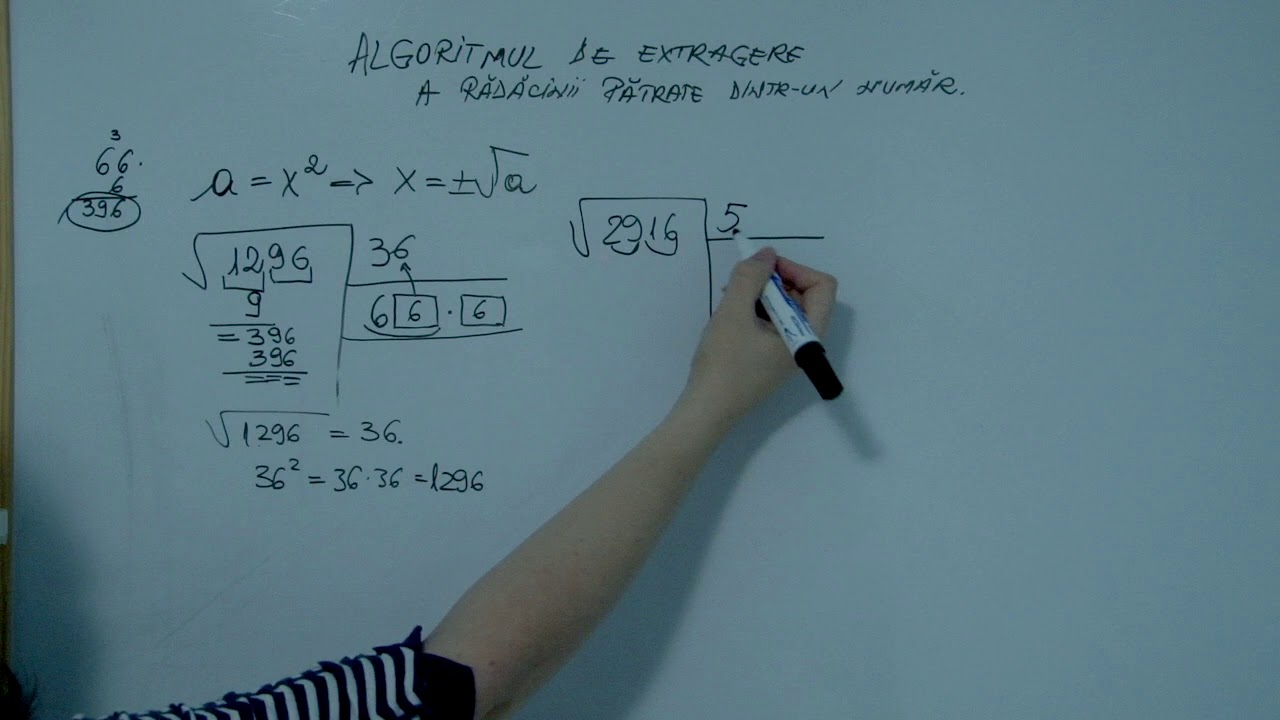 ALGORITMUL DE EXTRAGERE
A RĂDĂCINII PĂTRATE DINTR-UN NUMĂR.
3
66.
6
396
a = x² => x = ±√a
√1296 36
9 6 6 · 6
= 396
396
===
√1296 = 36.
36² = 36·36 = 1296
√2916 5